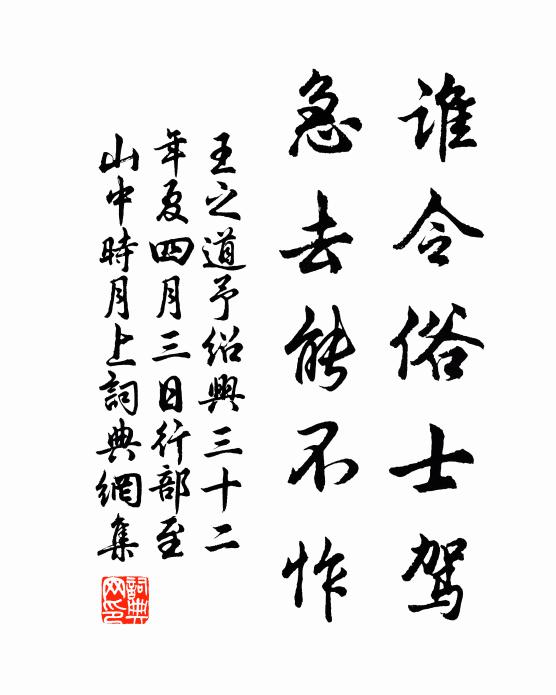 誰令俗士駕
急去能不怍
王之道予紹興三十二
年夏四月三日行部至
山中時月上詞典網集
詞典网印